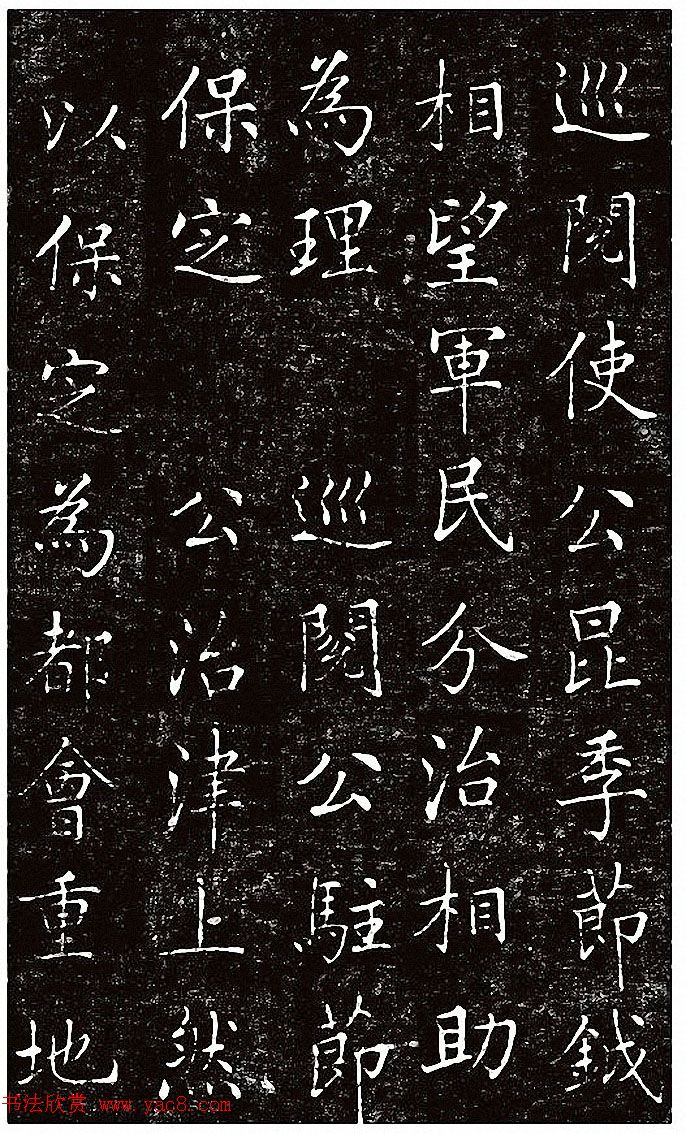 巡閱使公昆季節鉞
相望軍民分治相助
為理 巡閱公駐節
保定 公治津上然
以保定為都會重地
书法欣赏 www.yac8.com